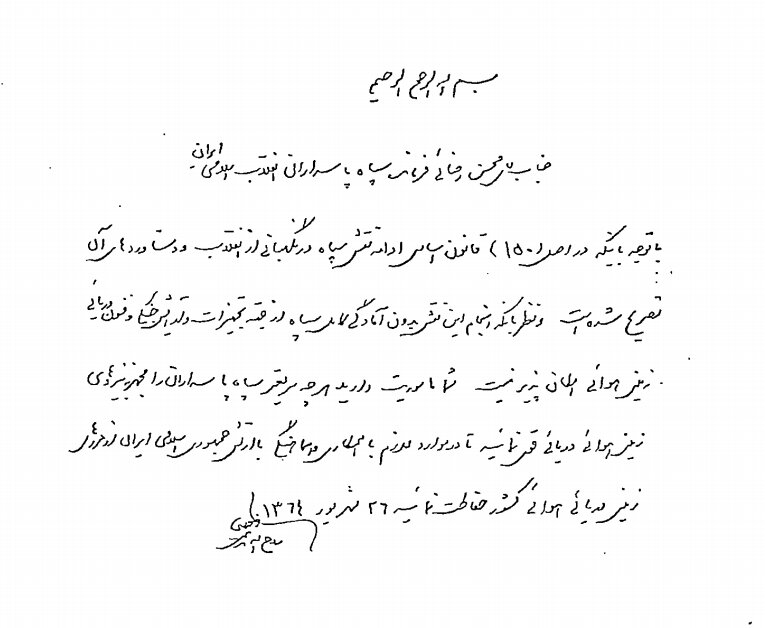 بسم الله الرحمن الرحیم
جناب آقای محسن رضائی فرمانده سپاه پاسداران انقلاب اسلامی ایران
با توجه باینکه در اصل (۱۵۰) قانون اساسی ادامه نقش سپاه در نگهبانی از انقلاب و دستاوردهای آن
تصریح شده است و نظر باینکه انجام این نقش بدون آمادگی کامل سپاه از جهت تجهیزات و تدابیر جنگی و فنون دریائی
زمینی هوائی امکان پذیر نیست شما ماموریت دارید هرچه سریعتر سپاه پاسداران را مجهز به نیروی
زمینی هوائی دریائی قوی نمائید تا در موارد لازم با همکاری و هماهنگی با ارتش جمهوری اسلامی ایران از مرزهای
زمینی دریائی هوائی کشور حفاظت نمائید ۲۶ شهریور ۱۳۶۴
روح الله الموسوی الخمینی